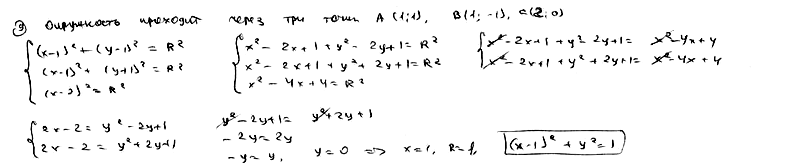 ③ Окружность проходит через три точки A (1;1), B(1; -1), C(2;0)
{ (x-1)² + (y-1)² = R²
(x-1)² + (y+1)² = R²
(x-2)² = R²
{ x² - 2x+1 + y² - 2y+1 = R²
x² - 2x+1 + y² + 2y+1 = R²
x² - 4x+4 = R²
{ x² - 2x+1 + y² - 2y+1 = x² - 4x + 4
x² - 2x+1 + y² + 2y+1 = x² - 4x + 4
{ 2x-2 = y² - 2y+1
2x-2 = y² + 2y+1
y² - 2y+1 = y² + 2y+1
-2y = 2y
-y = y, y=0 => x=1, R=1, (x-1)² + y² = 1